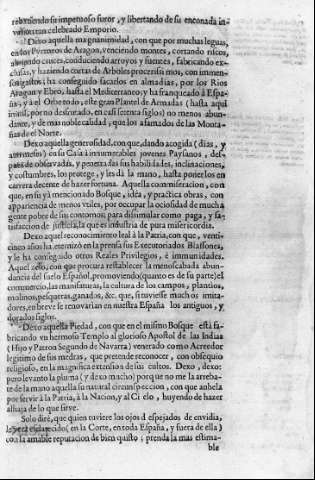 su impetuoso furor, y libertando de su enconada in-
tan celebrado Emporio.
Dexo aquella magnanimidad, con que por muchas leguas,
en los Pyrineos de Aragon, venciendo montes, cortando riscos,
abriendo cruces, conduciendo arroyos y fuentes, fabricando ex-
clusas, y haziendo cortas de Arboles procerissimos, con inmen-
sos gastos; ha conseguido sacarlos en almadias, por los Rios
Aragon y Ebro, hasta el Mediterraneo; y ha franqueado à Espa-
ñas, y à el Orbe todo, este gran Plantel de Armadas (hasta aqui
inutil, por no desfrutado, en casi setenta siglos) no menos abun-
dante, y de mas noble calidad, que los afamados de las Monta-
ñas de el Norte.
Dexo aquella generosidad, con que, dando acogida (dias, y
aun meses) en su Casa à innumerables jovenes Paysanos, des-
pues de observadas, y penetradas sus habilidades, inclinaciones,
y costumbres, los protege, y les dà la mano, hasta ponerlos en
carrera decente de hazer fortuna. Aquella conmiseracion, con
que, en su yà mencionado Bosque, idéa, y practica obras, con
apariencia de menos vtiles, por ocupar la ociosidad de mucha
gente pobre de sus contornos; para dissimular como paga, y sa-
tisfaccion de justicia, la que es industria de pura misericordia.
Dexo aquel reconocimiento leal à la Patria, con que, venti-
cinco años ha eternizó en la prensa sus Executoriados Blassones,
y le ha conseguido otros Reales Privilegios, è immunidades.
Aquel zelo, con que procura restablecer la menoscabada abun-
dancia del suelo Español, promoviendo (quanto es de su parte) el
commercio, las manifaturas, la cultura de los campos, plantios,
molinos, pesqueras, ganados, &c. que, si tuviesse muchos imita-
dores, en breve se renovarian en nuestra España los antiguos, y
dorados siglos.
Dexo aquella Piedad, con que en el mismo Bosque està fa-
bricando vn hermoso Templo al glorioso Apostol de las Indias
(Hijo y Patron Segundo de Navarra) venerado como Acreedor
legitimo de sus medras, que pretende reconocer, con obsequio
religioso, en la magnifica extension de sus cultos. Dexo, dexo:
por levanto la pluma (y dexo macho) porque no me la arreba-
te de la mano aquella su natural circunspeccion, con que anhela
por servir à la Patria, à la Nacion, y al Cielo, huyendo de hazer
alhaja de lo que sirve.
Solo diré, que quien tuviere los ojos despejados de envidia,
esclarecido (en la Corte, en toda España, y fuera de ella)
con la amable reputacion de bien quisto; prenda la mas estima-
ble